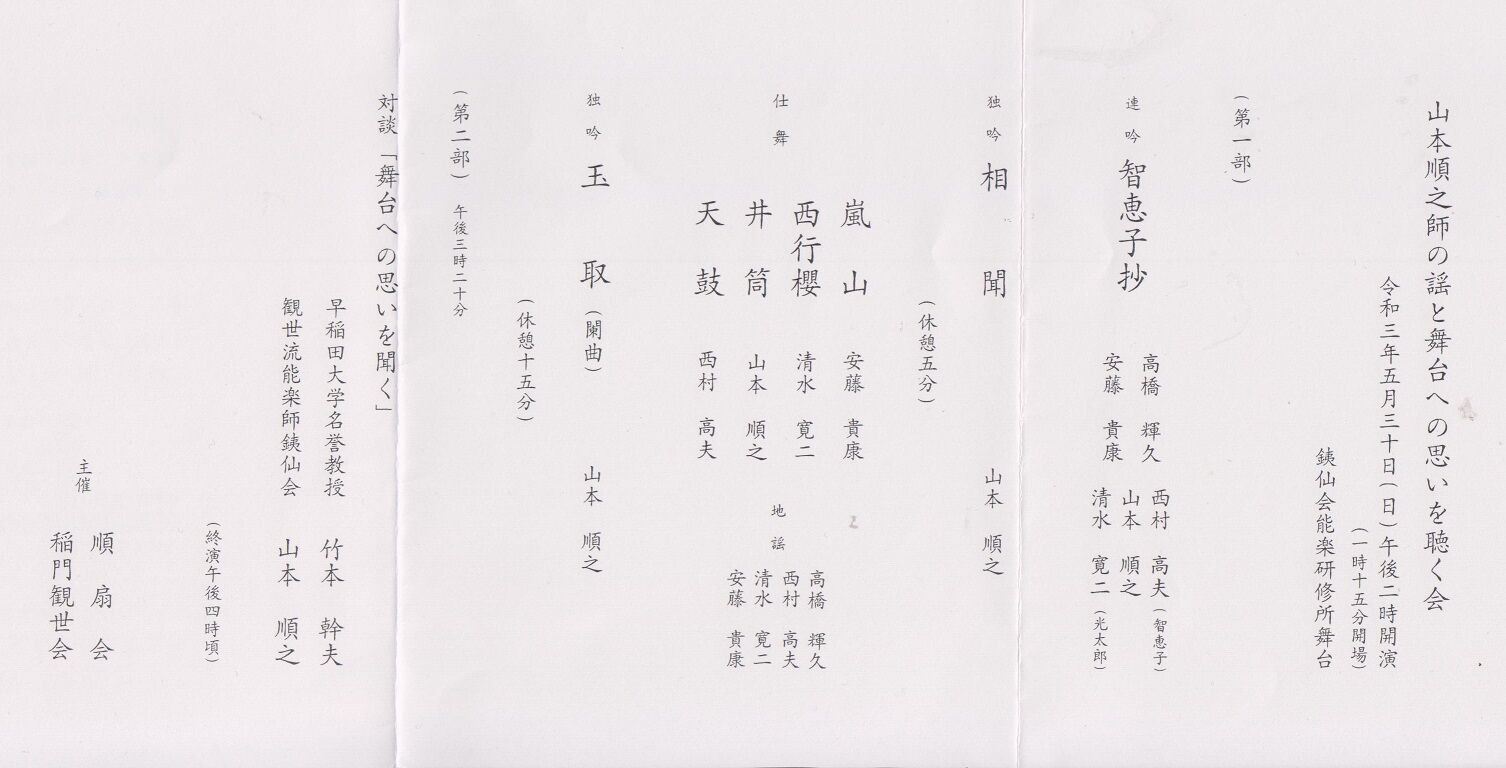 山本順之師の謡と舞台への思いを聴く会
令和三年五月三十日(日)午後二時開演
(一時十五分開場)
銕仙会能楽研修所舞台
(第一部)
連吟 智恵子抄
高橋 輝久 西村 高夫(智恵子)
山本 順之
安藤 貴康 清水 寛二(光太郎)
独吟 相聞 山本 順之
(休憩五分)
仕舞
嵐山 安藤 貴康
西行櫻 清水 寛二
井筒 山本 順之
天鼓 西村 高夫
地謡
高橋 輝久
西村 高夫
清水 寛二
安藤 貴康
独吟 玉取(闌曲) 山本 順之
(休憩十五分)
(第二部) 午後三時二十分
対談「舞台への思いを聞く」
早稲田大学名誉教授 竹本 幹夫
観世流能楽師銕仙会 山本 順之
(終演午後四時頃)
主催
順扇会
稲門観世会